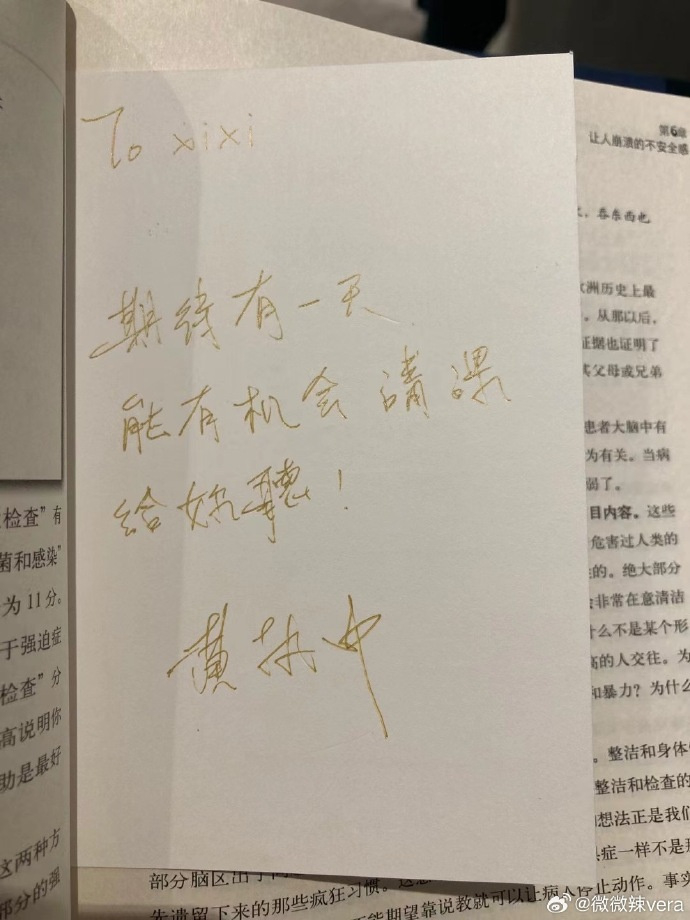 To xixi
期待有一天
能有机会講課
给妳聽！
黄执中
第6章
让人崩溃的不安全感
，吞东西也
欧洲历史上最
。从那以后，
证据也证明了
其父母或兄弟
患者大脑中有
为有关。当病
弱了。
目内容。这些
危害过人类的
性的。绝大部分
会非常在意清洁
什么不是某个形
高的人交往。为
和暴力？为什么
。整洁和身体
整洁和检查的
想法正是我们
症一样不是
检查”有
菌和感染”
为11分。
于强迫症
检查”分
高说明你
助是最好
这两种方
部分的强
部分脑区出于
先遗留下来的那些疯狂习惯。这
能期望靠说教就可以让病人停止动作。事实
@微微辣vera